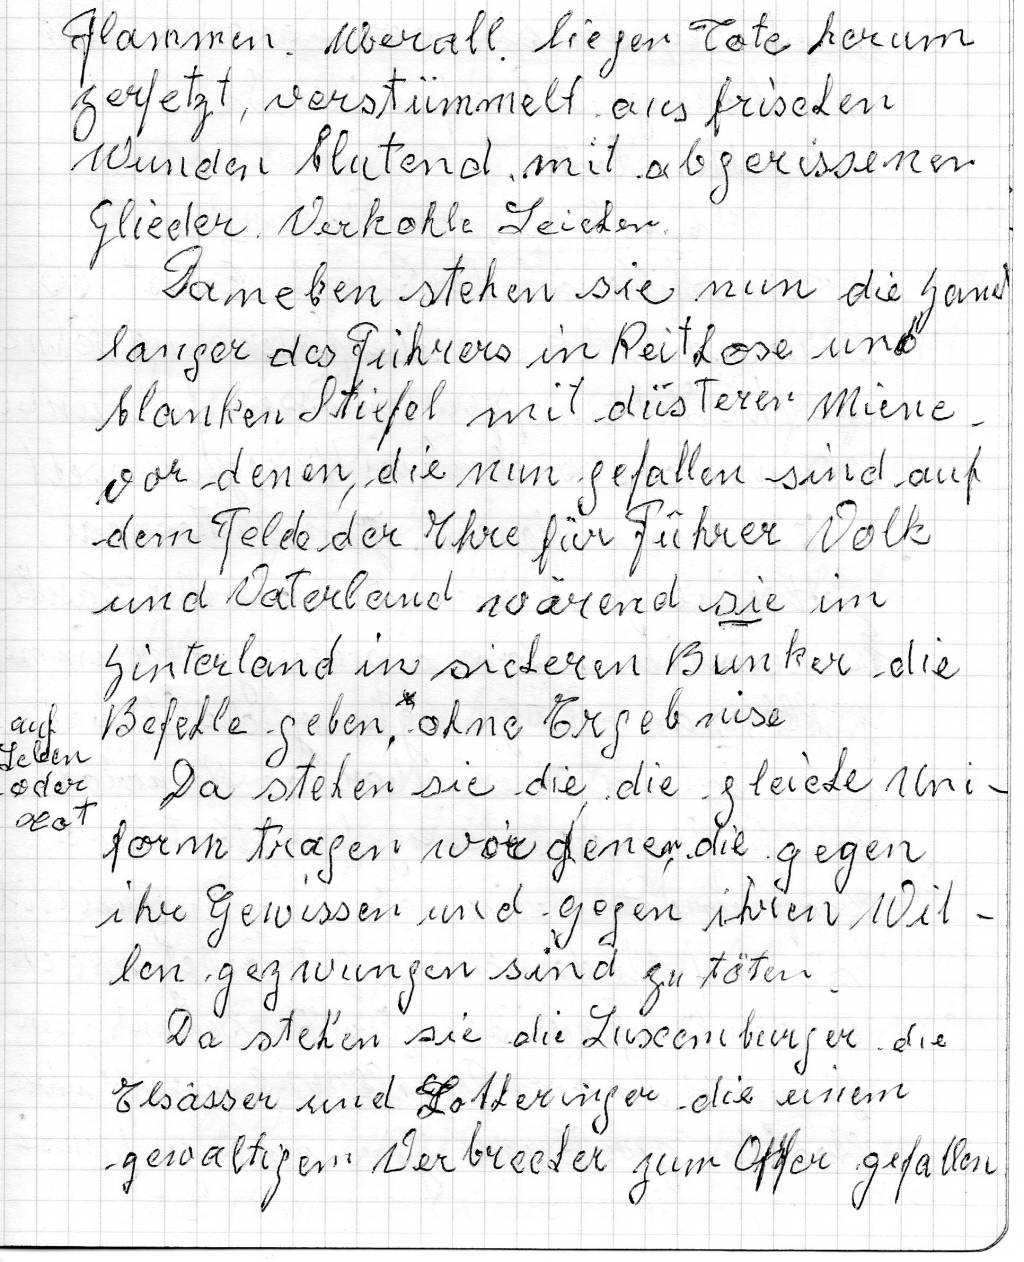 Flammen. Überall liegen Tote herum
zerfetzt, verstümmelt aus frischen
Wunden blutend mit abgerissenen
Glieder. Verkohle Leichen.
Daneben stehen sie nun die Hand
langer des Führers in Reithose und
blanken Stiefel mit düsterer Miene
vor denen, die nun gefallen sind auf
dem Felde der Ehre für Führer Volk
und Vaterland wärend sie im
Hinterland in sicheren Bunker die
Befehle geben,* ohne Ergebnise
auf
Leben
oder
Tot
Da stehen sie die, die gleiche Uni-
form tragen wor denen, die gegen
ihr Gewissen und gegen ihren Wil-
len gezwungen sind zu töten.
Da stehen sie die Luxemburger die
Elsässer und Lotheringer die einem
gewaltigen Verbrecher zum Opfer gefallen